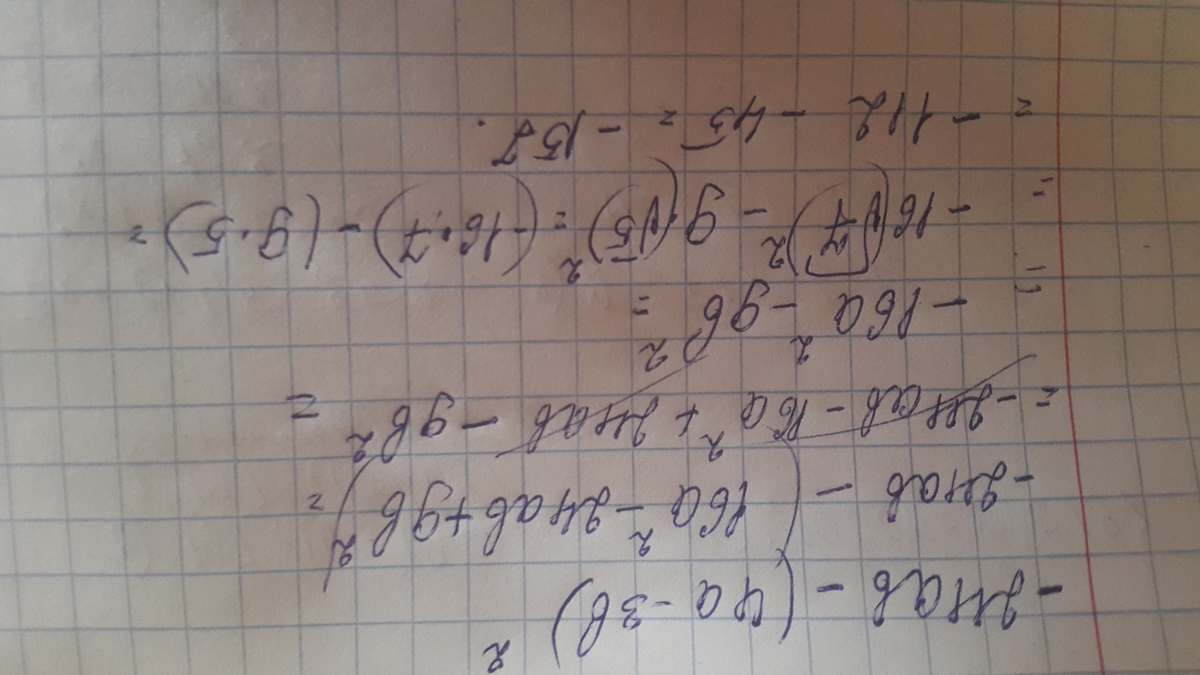 -24ab - (4a - 3b)²
-24ab - (16a² - 24ab + 9b²) =
= -24ab - 16a² + 24ab - 9b² =
= -16a² - 9b² =
= -16(√7)² - 9(√5)² = (-16·7) - (9·5) =
= -112 - 45 = -157.